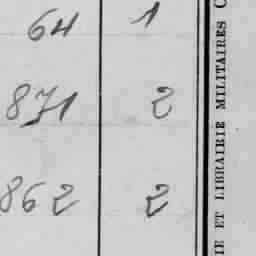 64 1
871 2
862 2
IE ET LIBRAIRIE MILITAIRES C